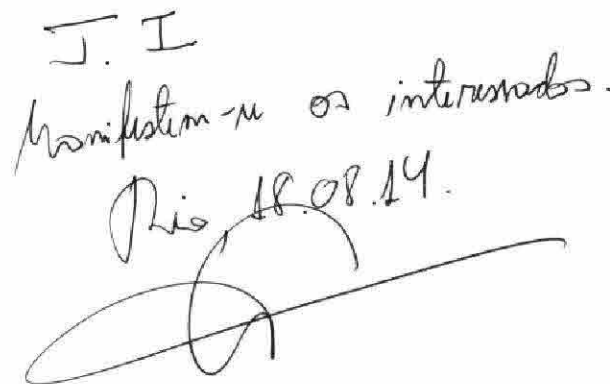 J. I
Manifestem-se os interessados.
Rio, 18.08.14.